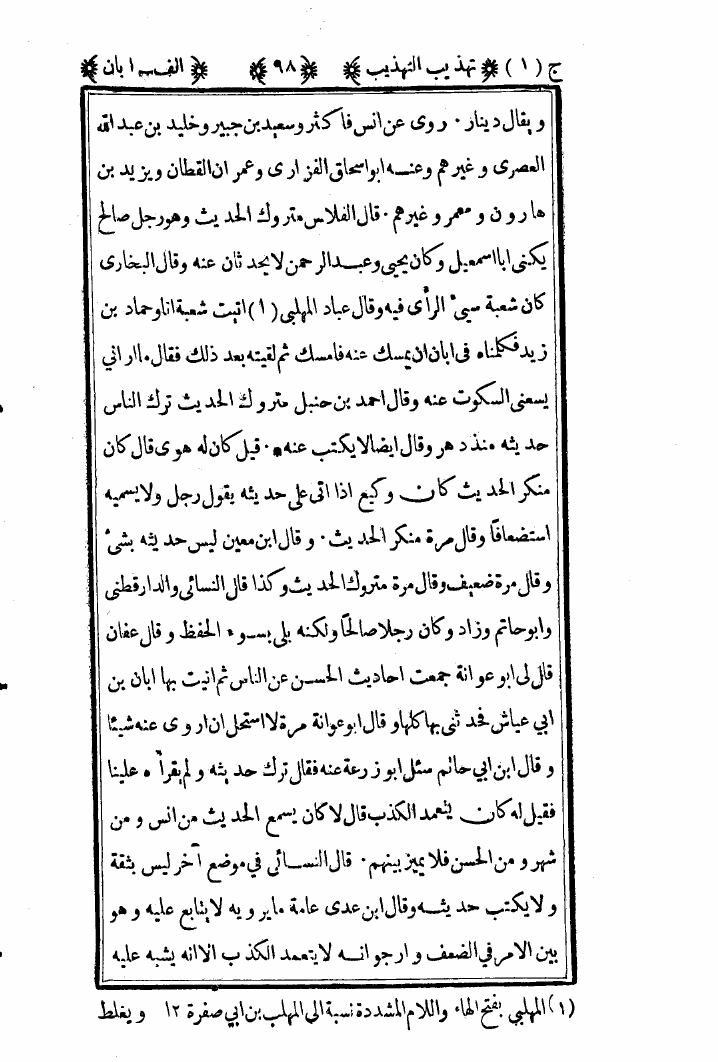 ج (١) ﴿ تهذيب التهذيب ﴾ ﴿ ٩٨ ﴾ ﴿ الف ـ ابان ﴾
ويقال دينار . روى عن انس فاكثر وسعيد بن جبير وخليد بن عبد الله
العصرى وغيرهم وعنه ابو اسحاق الفزارى وعمران القطان ويزيد بن
هارون ومعمر وغيرهم . قال الفلاس متروك الحديث وهو رجل صالح
يكنى ابا اسمعيل وكان يحيى وعبد الرحمن لا يحدثان عنه وقال البخارى
كان شعبة سيئ الرأى فيه وقال عباد المهلبي (١) اتيت شعبة انا وحماد بن
زيد فكلمناه فى ابان ان يمسك عنه فامسك ثم لقيته بعد ذلك فقال ما ارانى
يسعنى السكوت عنه وقال احمد بن حنبل متروك الحديث ترك الناس
حديثه منذ دهر وقال ايضا لا يكتب عنه . قيل كان له هوى قال كان
منكر الحديث كان وكيع اذا اتى على حديثه يقول رجل ولا يسميه
استضعافا وقال مرة منكر الحديث . وقال ابن معين ليس حديثه بشئ
وقال مرة ضعيف وقال مرة متروك الحديث وكذا قال النسائى والدارقطنى
وابو حاتم وزاد وكان رجلا صالحًا ولكنه بلى بسوء الحفظ وقال عفان
قال لى ابو عوانة جمعت احاديث الحسن عن الناس ثم اتيت بها ابان بن
ابي عياش فحدثنى بها كلها وقال ابو عوانة مرة لا استحل ان اروى عنه شيئا
وقال ابن ابي حاتم سئل ابو زرعة عنه فقال ترك حديثه ولم يقرأه علينا
فقيل له كان يتعمد الكذب قال لا كان يسمع الحديث من انس ومن
شهر ومن الحسن فلا يميز بينهم . قال النسائى في موضع آخر ليس بثقة
ولا يكتب حديثه وقال ابن عدى عامة ما يرويه لا يتابع عليه وهو
بين الامر في الضعف وارجو انه لا يتعمد الكذب الا انه يشبه عليه
(١) المهلبي بفتح الهاء واللام المشددة نسبة الى المهلب بن ابي صفرة ١٢ ويغلط